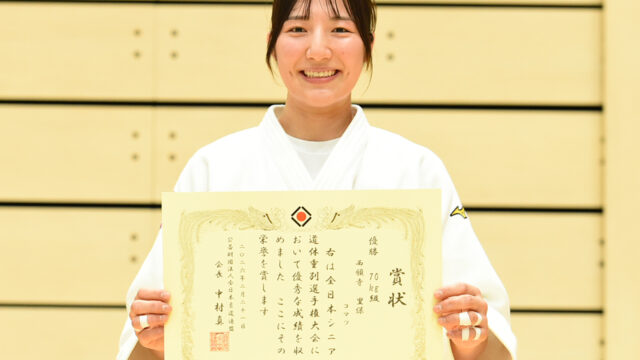 賞状
優勝 70kg級
コマツ
西願寺 里保
右は全日本シニア
道体重別選手権大会に
おいて優秀な成績を収
めました ここにその
栄誉を賞します
二〇二六年二月二十一日
公益財団法人全日本柔道連盟
会長 中村真一